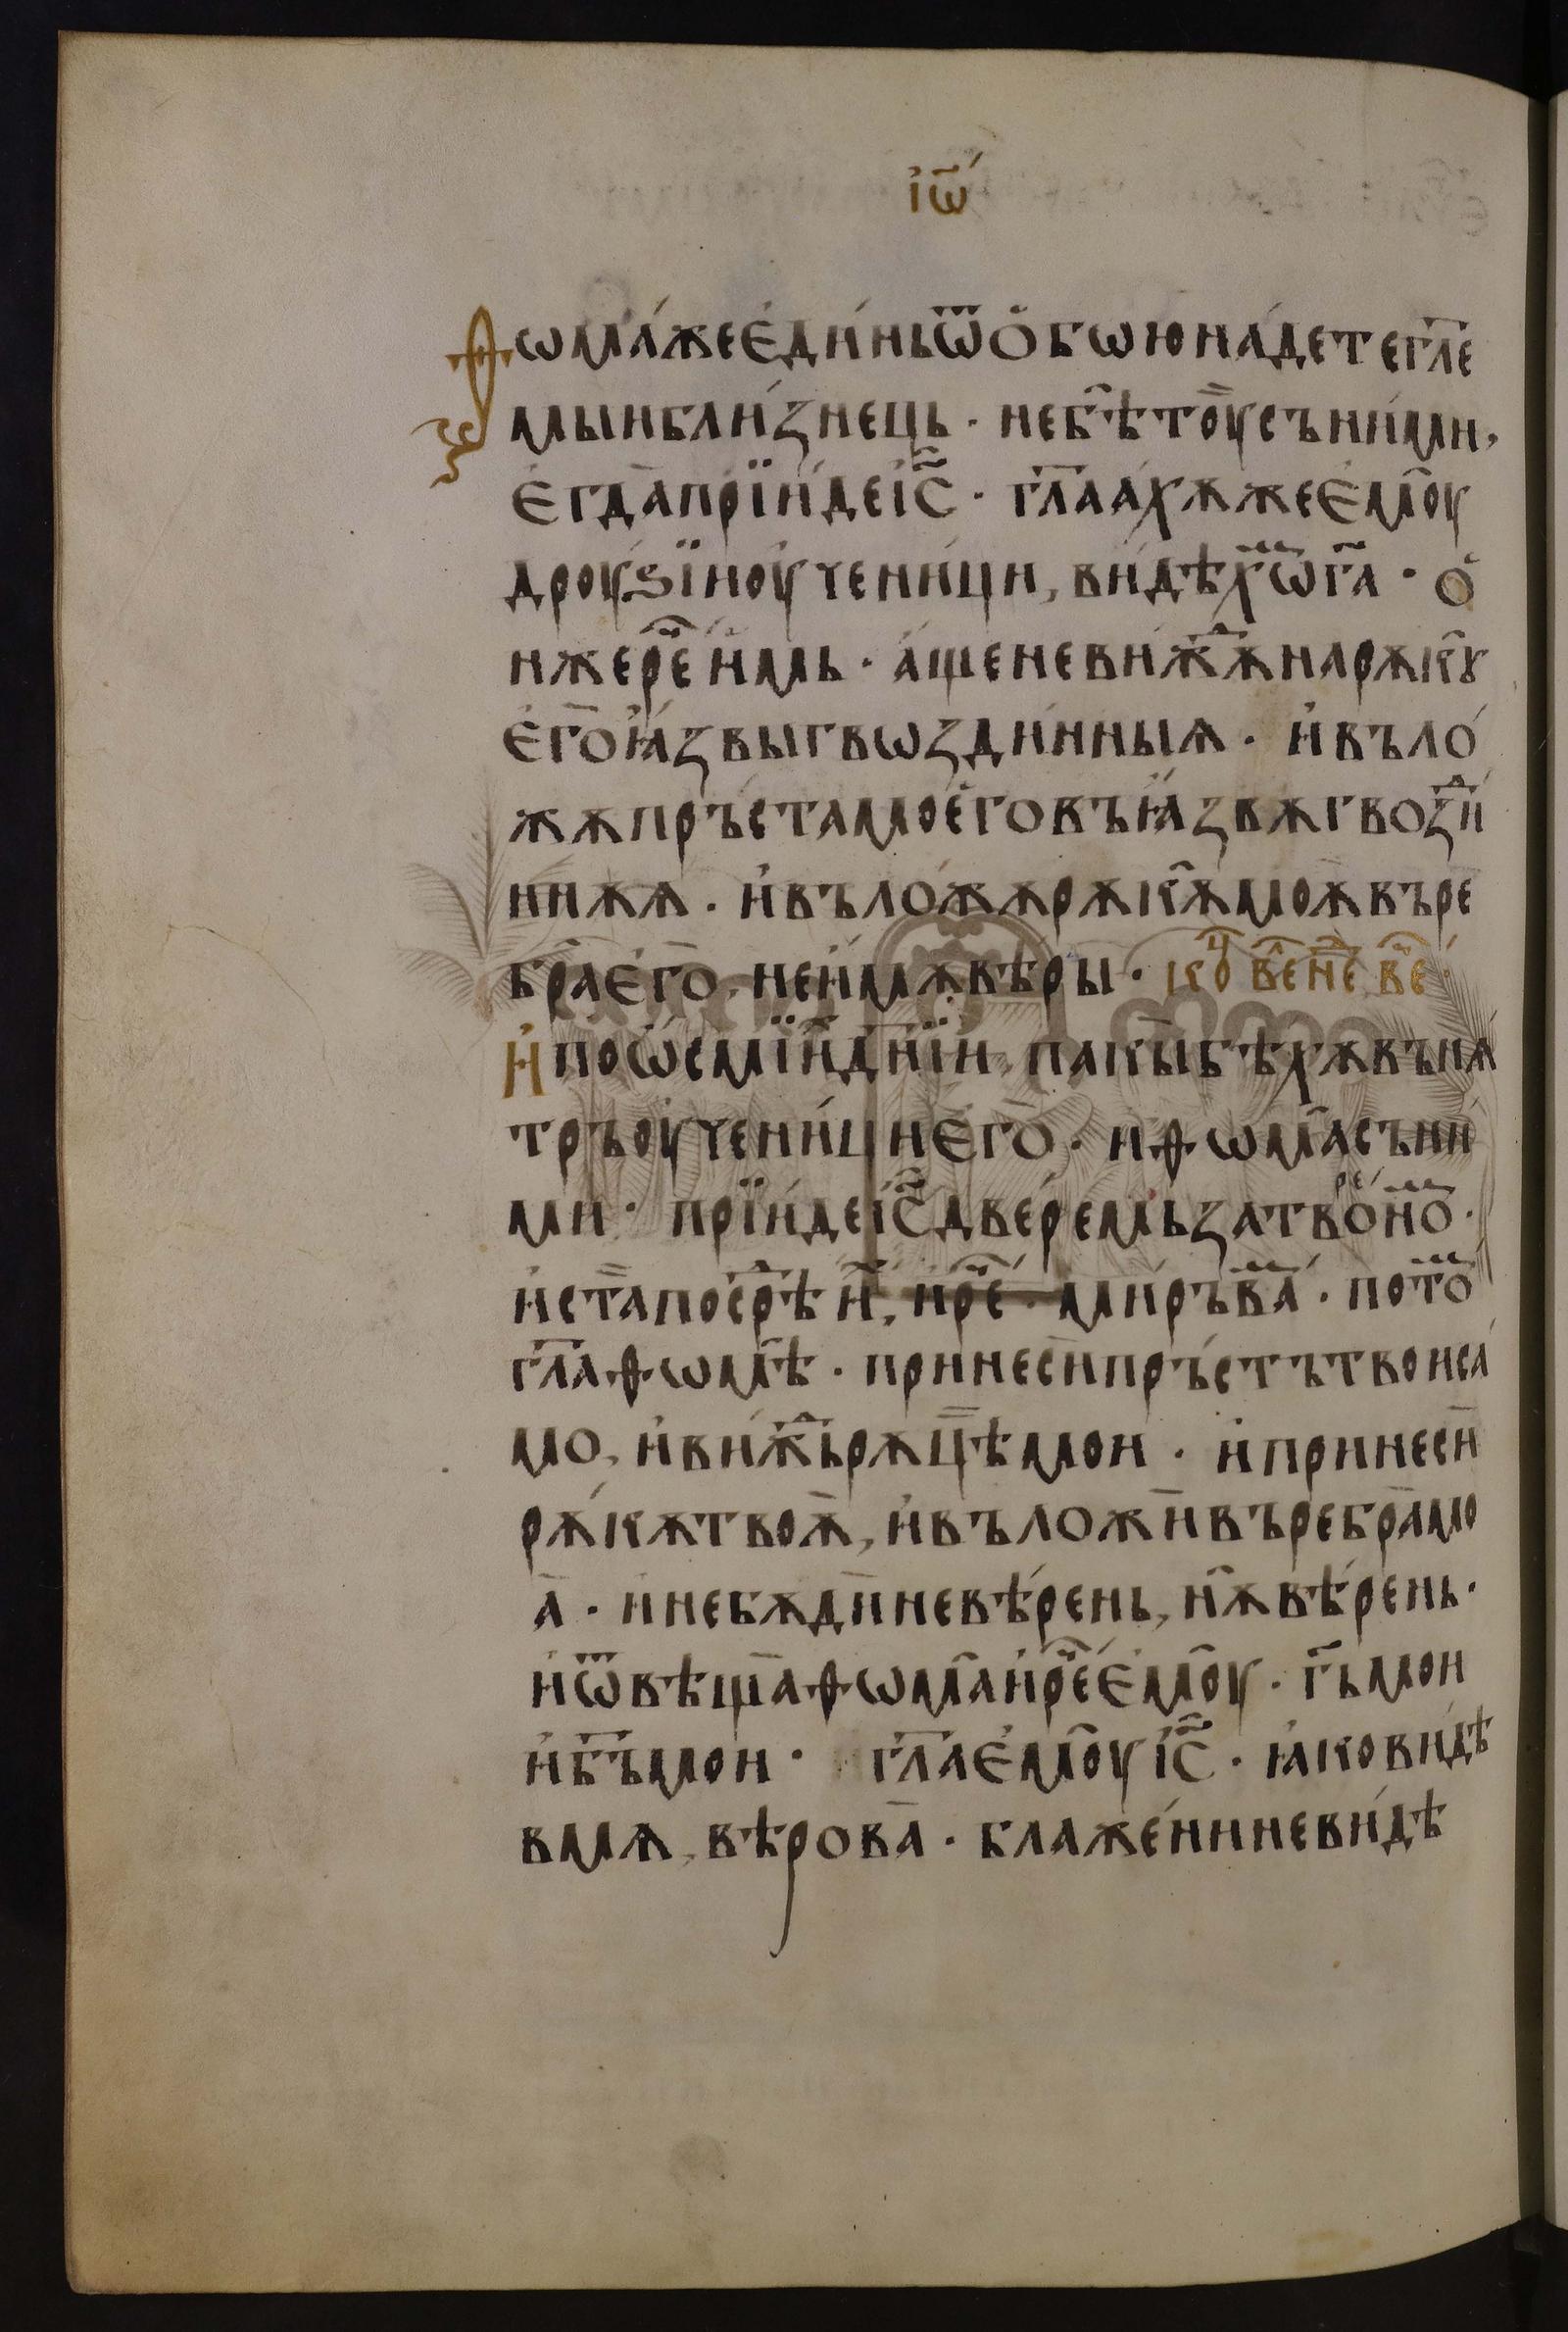 і҆ѡ҃
Ѳѡма́жеѐди́ньѿо҆боюна́десѧтегл҃е
мыиблизнець · небѣ̀тоусъни́ми,
є҆гда̀прїи́деі҆с҃ · гл҃аахѫжеѐмоу
дроуѕїиоучени́ци, ви́дѣхѡⷨг҃а · о҆
нжереⷱ҇и҆мь · а́щеневи́жⷣѫнарѫкꙋ
є҆го̀ꙗ҆́звыгвѡзди́нныѧ · и҆въло́
жѫпръ́стамоегòвъꙗ҆́звѫгвозⷣи́
ннѫѧ · и҆въло́жѫрѫкѫ̀моѫ̀въре
бра̀єго̀, неи҆мѫвѣ́ры · коⷰ҇ веⷧ҇неⷣ веⷱ҇
И҆поѡ҆смїи́дн҃їи, пакы̀бѣ́хѫвънѫ
тръоучени́циего̀ · и҆ѳѡма̀съни́
ми · прїи́деі҆с҃две́ремьзатворе́ноⷨ ·
и҆ста̀посреⷣѣиⷯ, и҆реⷱ҇ · миръваⷨ · потоⷨ
гл҃аѳѡмѣ̀ · принесѝпръ́стътвоиса́
мо, и҆виⷤⷣьрѫцѣ̀мои · и҆принесѝ
рѫ́кѫтвоѫ̀, и҆въложѝвъребра̀мо
а̀ · и҆небѫдѝневѣ́рень, нѫ̀вѣ́рень ·
и҆ѿвѣща̀ѳѡма̀и҆реⷱ҇ѐмоу · г҃ьмои
и҆б҃ъмои · гл҃аѐмоуі҆с҃ · ꙗ҆ковидѣ
вмѧ, вѣ́рова̀ · блаже́ниневи́дѣ